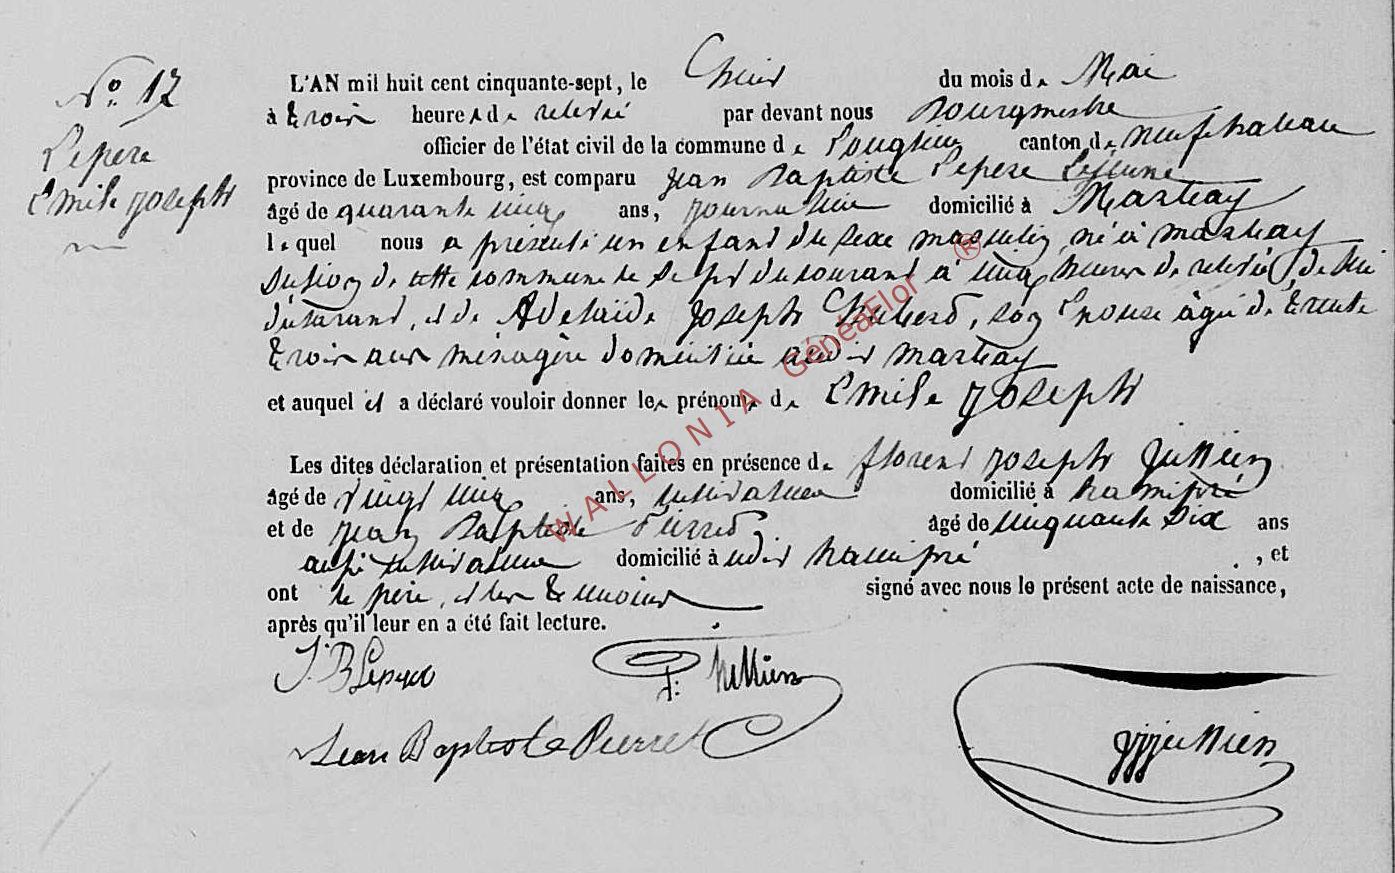 N° 17
Pepere
Emile Joseph
L'AN mil huit cent cinquante-sept, le huit du mois de Mai
à trois heures de relevée par devant nous Bourgmestre
officier de l'état civil de la commune de Longlier canton de neufchateau
province de Luxembourg, est comparu Jean Baptiste Pepere
âgé de quarante cinq ans, journalier domicilié à Martzay
lequel nous a présenté un enfant du sexe masculin, né à martzay
section de cette commune le du courant à cinq heures de relevée, de lui
déclarant, et de Adelaïde Joseph, son Epouse âgée de trente
trois ans ménagère domiciliée audit martzay
et auquel il a déclaré vouloir donner les prénoms de Emile Joseph
Les dites déclaration et présentation faites en présence de florent Joseph Jullien
âgé de vingt cinq ans, cultivateur domicilié à hamipré
et de Jean Baptiste Pierret âgé de cinquante Six ans
aussi cultivateur domicilié à udit hamipré, et
ont le père, et les témoins signé avec nous le présent acte de naissance,
après qu'il leur en a été fait lecture.
J. B Pepere
f: Jullien
Jean Baptiste Pierret
Jullien
WALLONIA GénéaFlor ®